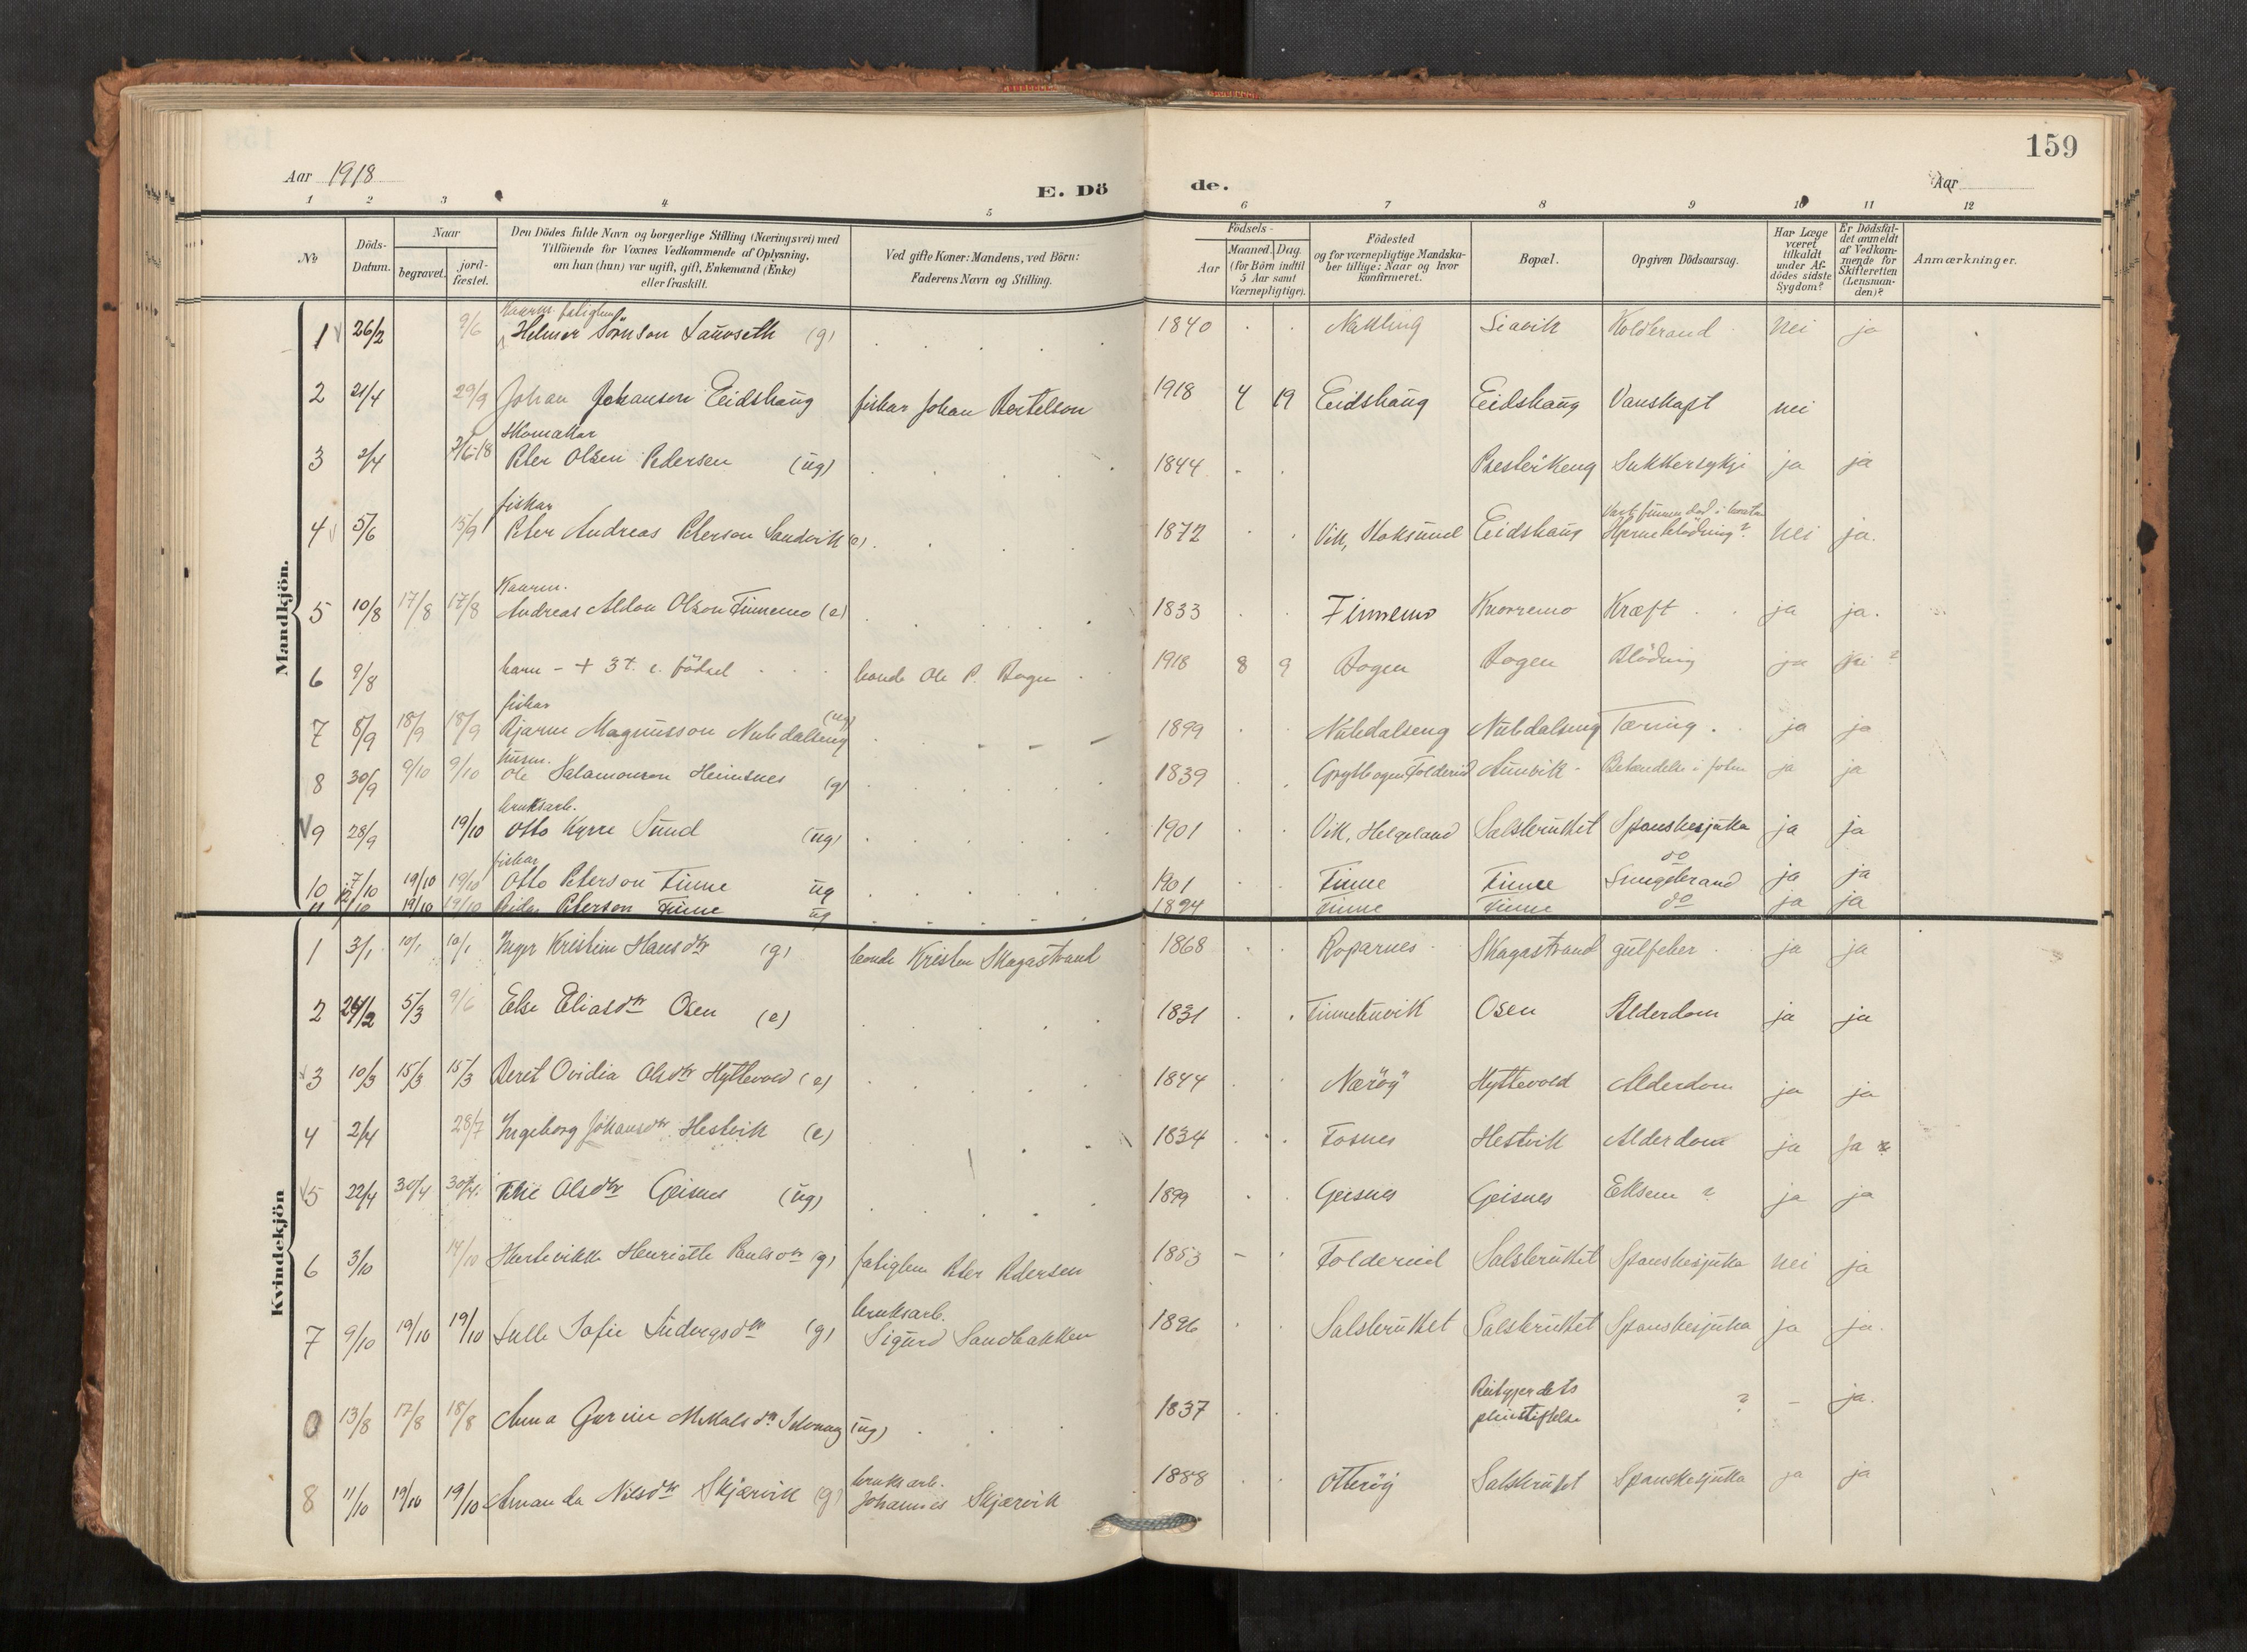 159
Aar 1918
E. Dö
de.
Aar
1 2 3 4 5 6 7 8 9 10 11 12
No
Döds-Datum.
Naar
begravet.
jord-fæstet.
Den Dödes fulde Navn og borgerlige Stilling (Næringsvei) med
Tilföiende for Voxnes Vedkommende af Oplysning,
om han (hun) var ugift, gift, Enkemand (Enke)
eller fraskilt.
Ved gifte Koner: Mandens, ved Börn:
Faderens Navn og Stilling.
Födsels-
Aar
Maaned. Dag.
(for Börn indtil
5 Aar samt
Værnepligtige).
Födested
og for værnepligtige Mandska-
ber tillige: Naar og hvor
konfirmeret.
Bopæl.
Opgiven Dödsaarsag.
Har Læge
været
tilkaldt
under Af-
dödes sidste
Sygdom?
Er Dödsfal-
det anmeldt
af Vedkom-
mende for
Skifteretten
(Lensman-
den)?
Anmærkninger.
Mandkjön.
1 26/2 9/6 Helmer Sörnson Lauvseth (g) 1840 Liavik Koldbrand nei ja
2 21/4 29/9 Johan Johansen Eidshaug fiskar Johan Bertelson 1918 4 19 Eidshaug Eidshaug Vanskapt nei
skomakar
3 2/4 2/6-18 Peter Olsen Pedersen (ug) 1844 Presteikeng Sukkersykji ja ja
fiskar
4 5/6 15/9 Peter Andreas Peterson Sandvik (e) 1872 Vik, Stoksund Eidshaug Hjerneblödning? nei ja.
Kaarm.
5 10/8 17/8 17/8 Andreas Olson Finnemo (e) 1833 Finnemo Knorremo Kræft ja ja.
6 9/8 barn - + 3 t. e. födsel bonde Ole P. Bogen 1918 8 9 Bogen Bogen Blödning ja
fiskar
7 8/9 18/9 18/9 Bjarne Magnusson Nubdalseng (ug) 1899 Nubdalseng Nubdalseng Tæring ja ja
husm.
8 30/9 9/10 9/10 Ole Salamonsen Heimsnes (g) 1839 Aunvik Betændelse i foten ja ja
bruksarb.
9 28/9 19/10 Otto Kyrre Sund (ug) 1901 Vik, Helgeland Salsbruket Spanskesjuka ja ja
fiskar do
10 7/10 19/10 19/10 Otto Peterson Finne ug 1901 Finne Finne Lungebrand ja ja
11 12/10 19/10 19/10 Peterson Finne ug 1894 Finne Finne do ja ja
Kvindekjön
1 3/1 10/1 10/1 Inger Kristine Hansdtr (g) bonde Kristen Skagastrand 1868 Roparnes Skagastrand gulfeber ja ja
2 24/2 5/3 9/6 Else Eliasdtr Osen (e) 1831 Osen Alderdom ja ja
3 10/3 15/3 15/3 Beret Ovidia Olsdtr Hyttevold (e) 1844 Næröy Hyttevold Alderdom ja ja
4 2/4 28/7 Ingeborg Johansdtr Hestvik (e) 1834 Fosnes Hestvik Alderdom ja ja
5 22/4 30/4 30/4 Olsdtr Geisnes (ug) 1899 Geisnes Geisnes Eksem ? ja ja
6 3/10 14/10 Henriette Paulsdtr (g) fatiglem Peter Pedersen 1853 Foldereid Salsbruket Spanskesjuka nei ja
bruksarb.
7 9/10 19/10 19/10 Lulle Sofie Ludvigsdtr (g) Sigurd Sandbakken 1896 Salsbruket Salsbruket Spanskesjuka ja ja.
Reitgjerdets
0 13/8 17/8 18/8 Anna Gurine Mikalsdtr (ug) 1837 pleiestiftelse ? - ja.
bruksarb.
8 11/10 19/10 19/10 Amanda Nilsdtr Skjærvik (g) Johannes Skjærvik 1888 Otteröy Salsbruket Spanskesjuka ja ja